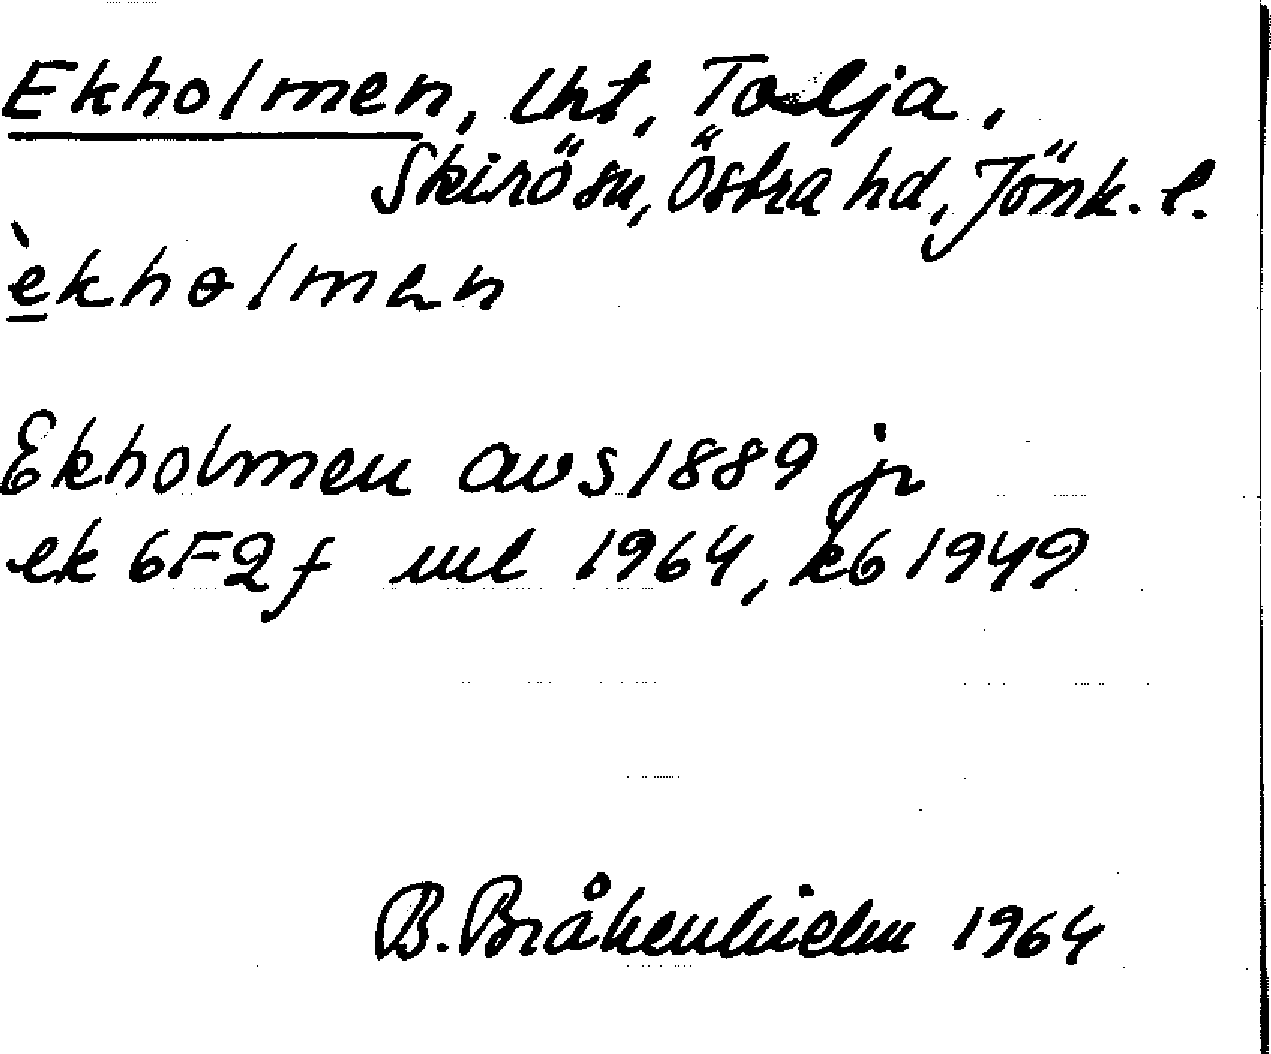 Ekholmen, lht, Todja,
Skirö sn, Östra hd, Jönk. l.
èkholmən
Ekholmen avs 1889 jr
ek 6F2f ml 1964, kb 1949
B. Bråkenhielm 1964